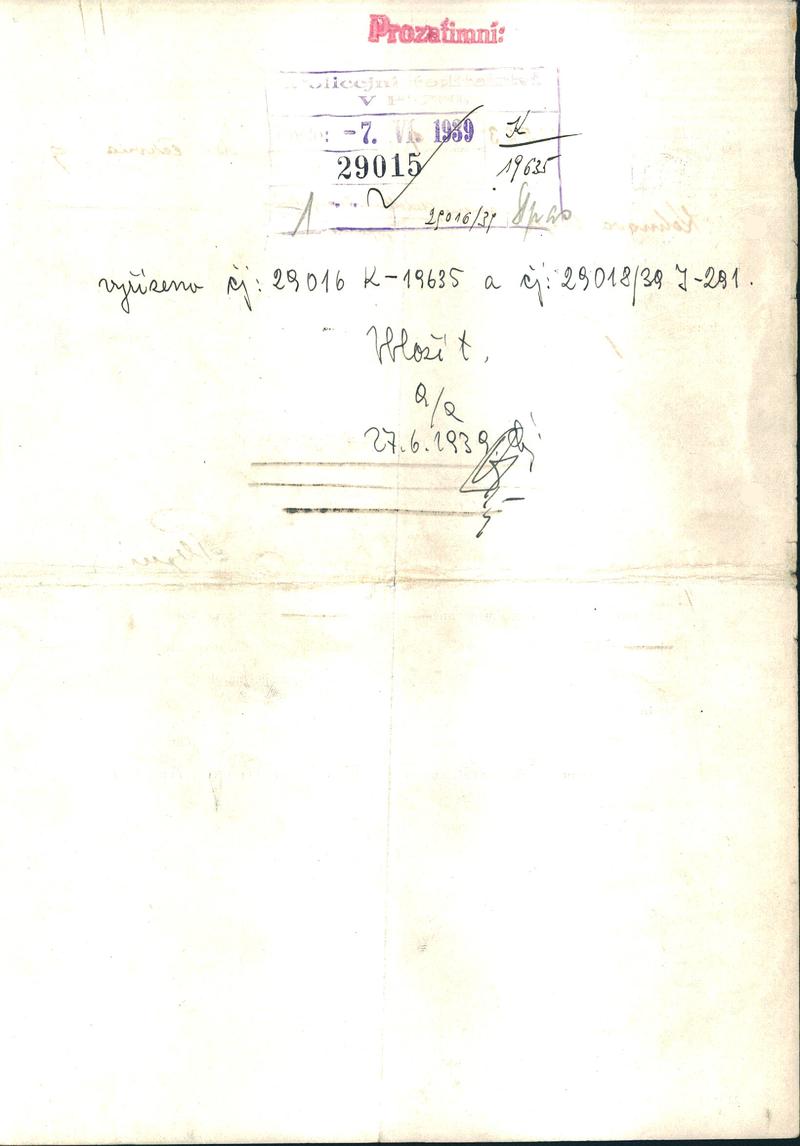 Prozatimní:
Policejní ředitelství
V
-7. VI. 1939 K
29015 19635
1 29016/39
vyřízeno čj: 29016 K-19635 a čj: 29018/39 J-291.
Vložit,
a/a
27.6.1939